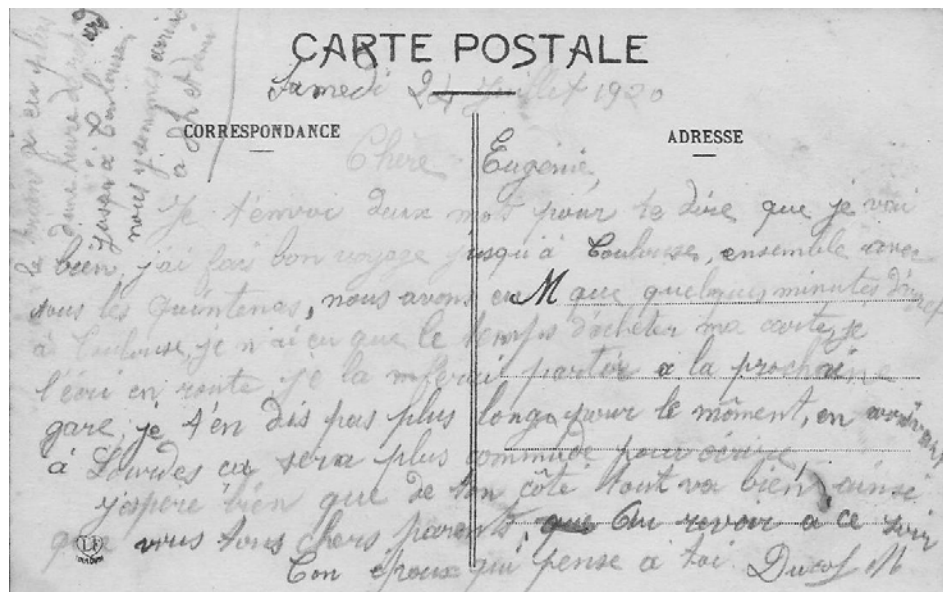 CARTE POSTALE
Samedi 24 Juillet 1920
CORRESPONDANCE
ADRESSE
Chère Eugénie,
Je t'envoi deux mot pour te dire que je vai
bien, j'ai fais bon voyage jusqu'à Toulouse, ensemble avec
tous les Quintenas, nous avons eu que quelques minutes d'arret
à Toulouse, je n'ai eu que le temps d'acheter ma carte, je
l'écri en route je la ferai partir a la prochaine
gare, je t'en dis pas plus long pour le môment, en arrivant
à Lourdes ca sera plus commode pour écrire
j'aspere bien que de ton côté tout va bien ainsi
que vous tous chers parents, Au revoir a ce soir
Ton époux qui pense à toi Ducos M
d'une heure de retard
jusqu'à Toulouse
nous y sommes arrivé
à et demi